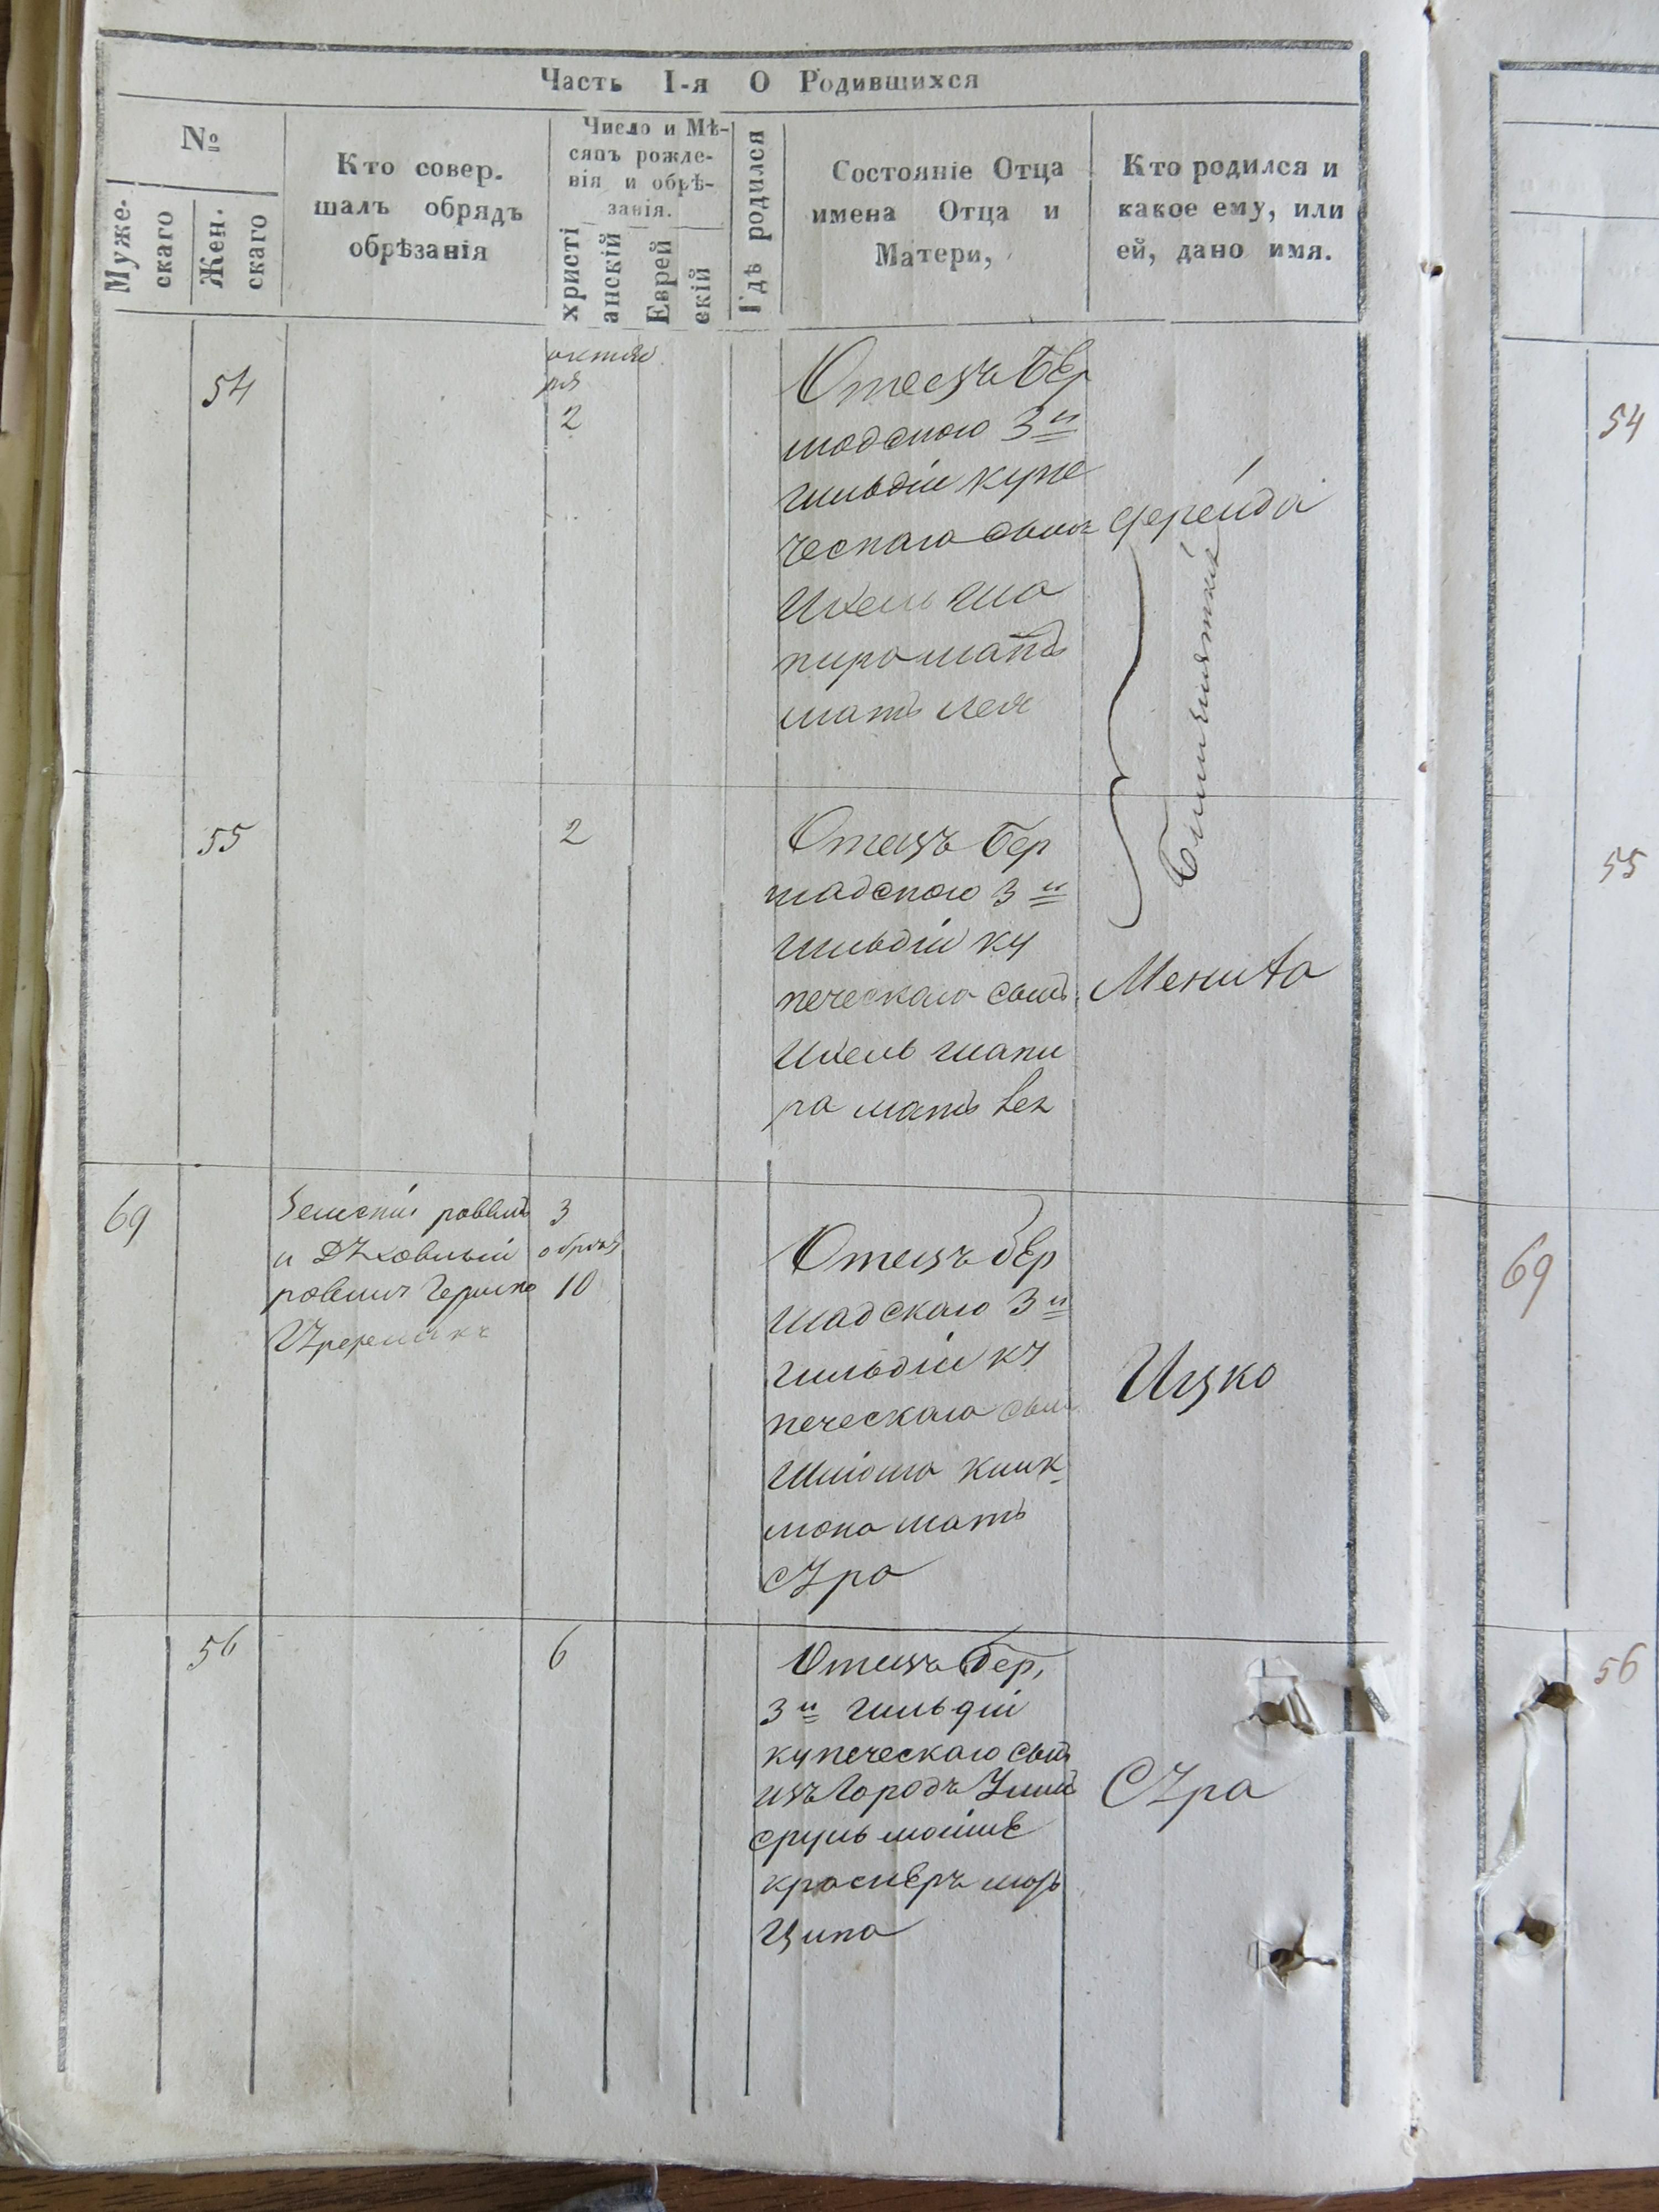 Часть I-я О Родившихся
№
Муже-
скаго
Жен.
скаго
Кто совер.
шалъ обрядъ
обрѣзанія
Число и Мѣ-
сяцъ рожде-
нія и обрѣ-
занія.
христі
анскій
Еврей
скій
Гдѣ родился
Состояніе Отца
имена Отца и
Матери,
Кто родился и
какое ему, или
ей, дано имя.
54
октяб
ря
2
Отецъ Бер
шадского 3й
гильдіи купе
ческаго сынъ
Ихель ша
пиро мать
мать лея
фрейда
Близнятки
54
55
2
Отецъ бер
шадского 3й
гильдіи ку
печескаго сынъ
Ихель шапи
ра мать
Менита
55
69
раввинъ
и духовный
равинъ Гершко
3
обрѣз
10
Отецъ бер
шадскаго 3й
гильдіи ку
печескаго сынъ
Шліома
мать
Сура
Ицко
69
56
6
Отецъ бер,
3й гильдіи
купеческаго сынъ
изъ города
сруль мошие
краснеръ мать
Ципа
Сура
56